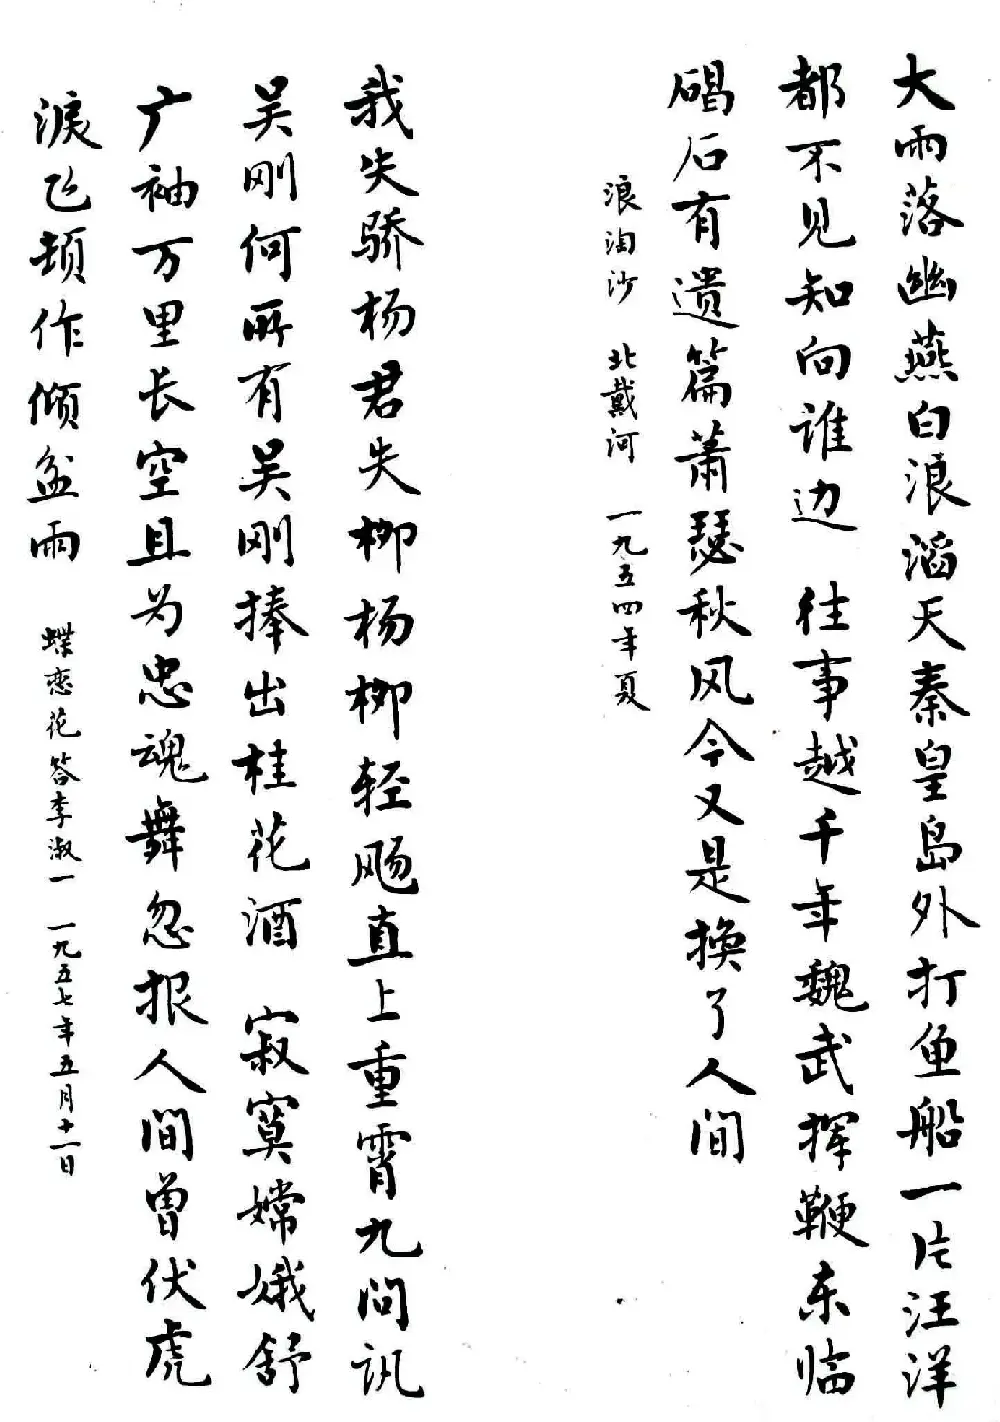 大雨落幽燕白浪滔天秦皇岛外打鱼船一片汪洋
都不见知向谁边 往事越千年魏武挥鞭东临
碣石有遗篇萧瑟秋风今又是换了人间
浪淘沙 北戴河 一九五四年夏
我失骄杨君失柳杨柳轻飏直上重霄九问讯
吴刚何所有吴刚捧出桂花酒 寂寞嫦娥舒
广袖万里长空且为忠魂舞忽报人间曾伏虎
淚飞顿作倾盆雨 蝶恋花答李淑一 一九五七年五月十一日